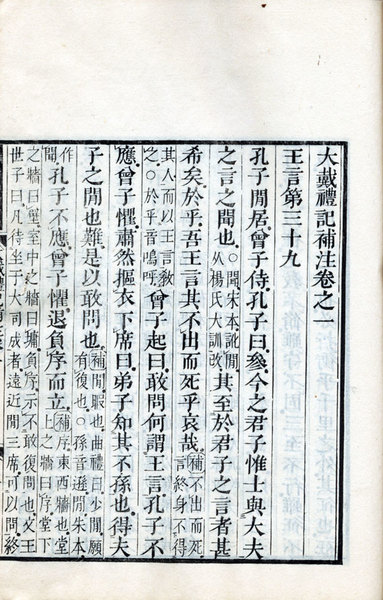 大戴禮記補注卷之一
王言第三十九
孔子閒居曾子侍孔子曰參今之君子惟士與大夫
之言之閒也○閒宋本訛聞从楊氏大訓改其至於君子之言者甚
希矣於乎吾王言其不出而死乎哀哉補不出而死言終身不得
其人而以王言敎之○於乎音嗚呼曾子起曰敢問何謂王言孔子不
應曾子懼肅然摳衣下席曰弟子知其不孫也得夫
子之閒也難是以敢問也補閒暇也曲禮曰少閒願有復也○孫音遜閒朱本
作聞孔子不應曾子懼退負序而立補序東西牆也堂上之牆曰序堂下
之牆曰壁室中之牆曰墉負序示不敢復問也文王
世子曰凡侍坐于大司成者遠近閒三席可以問終